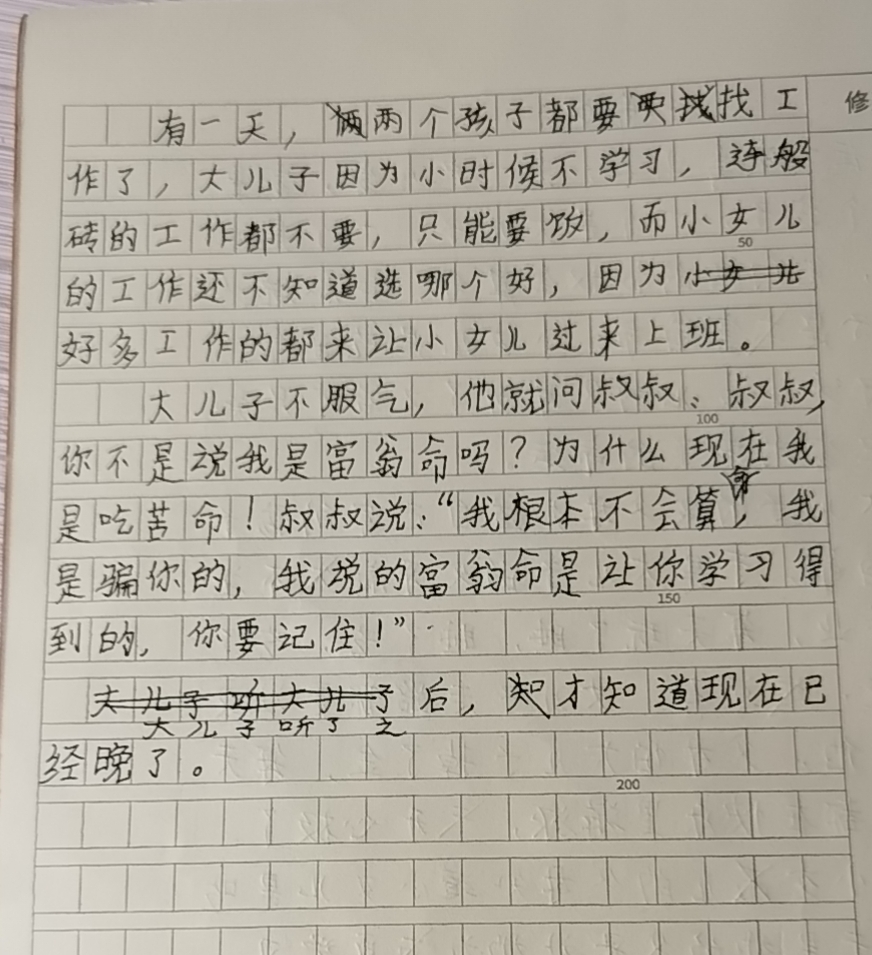 有一天，两个孩子都要找工
修
作了，大儿子因为小时候不学习，连般
砖的工作都不要，只能要饭，而小女儿
50
的工作还不知道选哪个好，因为
好多工作的都来让小女儿过来上班。
大儿子不服气，他就问叔叔：叔叔，
100
你不是说我是富翁命吗？为什么现在我
是吃苦命！叔叔说：“我根本不会算命，我
是骗你的，我说的富翁命是让你学习得
150
到的，你要记住！”
大儿子听了之后，才知道现在已
经晚了。
200